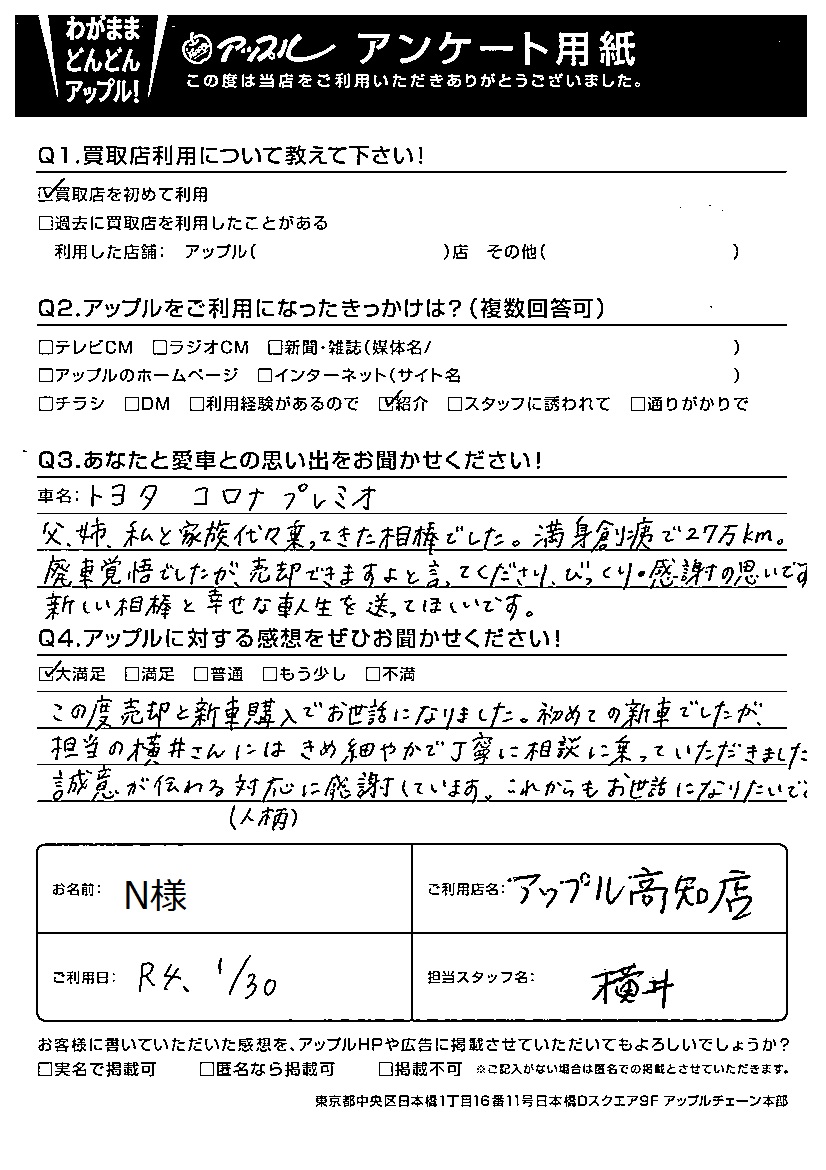 わがまま
どんどん
アップル!
アップル アンケート用紙
この度は当店をご利用いただきありがとうございました。
Q1.買取店利用について教えて下さい!
☑買取店を初めて利用
□過去に買取店を利用したことがある
利用した店舗： アップル( )店 その他( )
Q2.アップルをご利用になったきっかけは?(複数回答可)
□テレビCM □ラジオCM □新聞・雑誌(媒体名/ )
□アップルのホームページ □インターネット(サイト名 )
□チラシ □DM □利用経験があるので ☑紹介 □スタッフに誘われて □通りがかりで
Q3.あなたと愛車との思い出をお聞かせください!
車名：トヨタ コロナ プレミオ
父、姉、私と家族代々乗ってきた相棒でした。満身創痍で27万km。
廃車覚悟でしたが、売却できますよと言ってくださり、びっくり・感謝の思いです
新しい相棒と幸せな車人生を送ってほしいです。
Q4.アップルに対する感想をぜひお聞かせください!
☑大満足 □満足 □普通 □もう少し □不満
この度売却と新車購入でお世話になりました。初めての新車でしたが、
担当の横井さんにはきめ細やかで丁寧に相談に乗っていただきました
誠意が伝わる対応に感謝しています。これからもお世話になりたいで
(人柄)
お名前： N様
ご利用店名： アップル高知店
ご利用日： R4、1/30
担当スタッフ名： 横井
お客様に書いていただいた感想を、アップルHPや広告に掲載させていただいてもよろしいでしょうか?
□実名で掲載可 □匿名なら掲載可 □掲載不可 ※ご記入がない場合は匿名での掲載とさせていただきます。
東京都中央区日本橋1丁目16番11号日本橋Dスクエア9F アップルチェーン本部